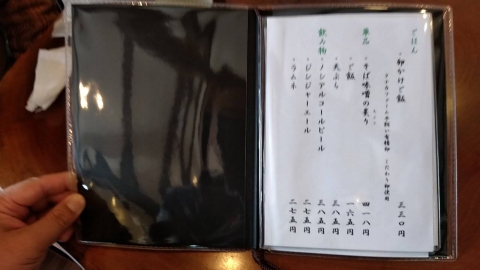 ごはん
・卵かけご飯 三三〇円
単品
・そば味噌の炙り 四一八円
・ご飯 一六五円
・天ぷら 三八五円
飲み物
・ノンアルコールビール 三八五円
・ジンジャーエール 二七五円
・ラムネ 二七五円